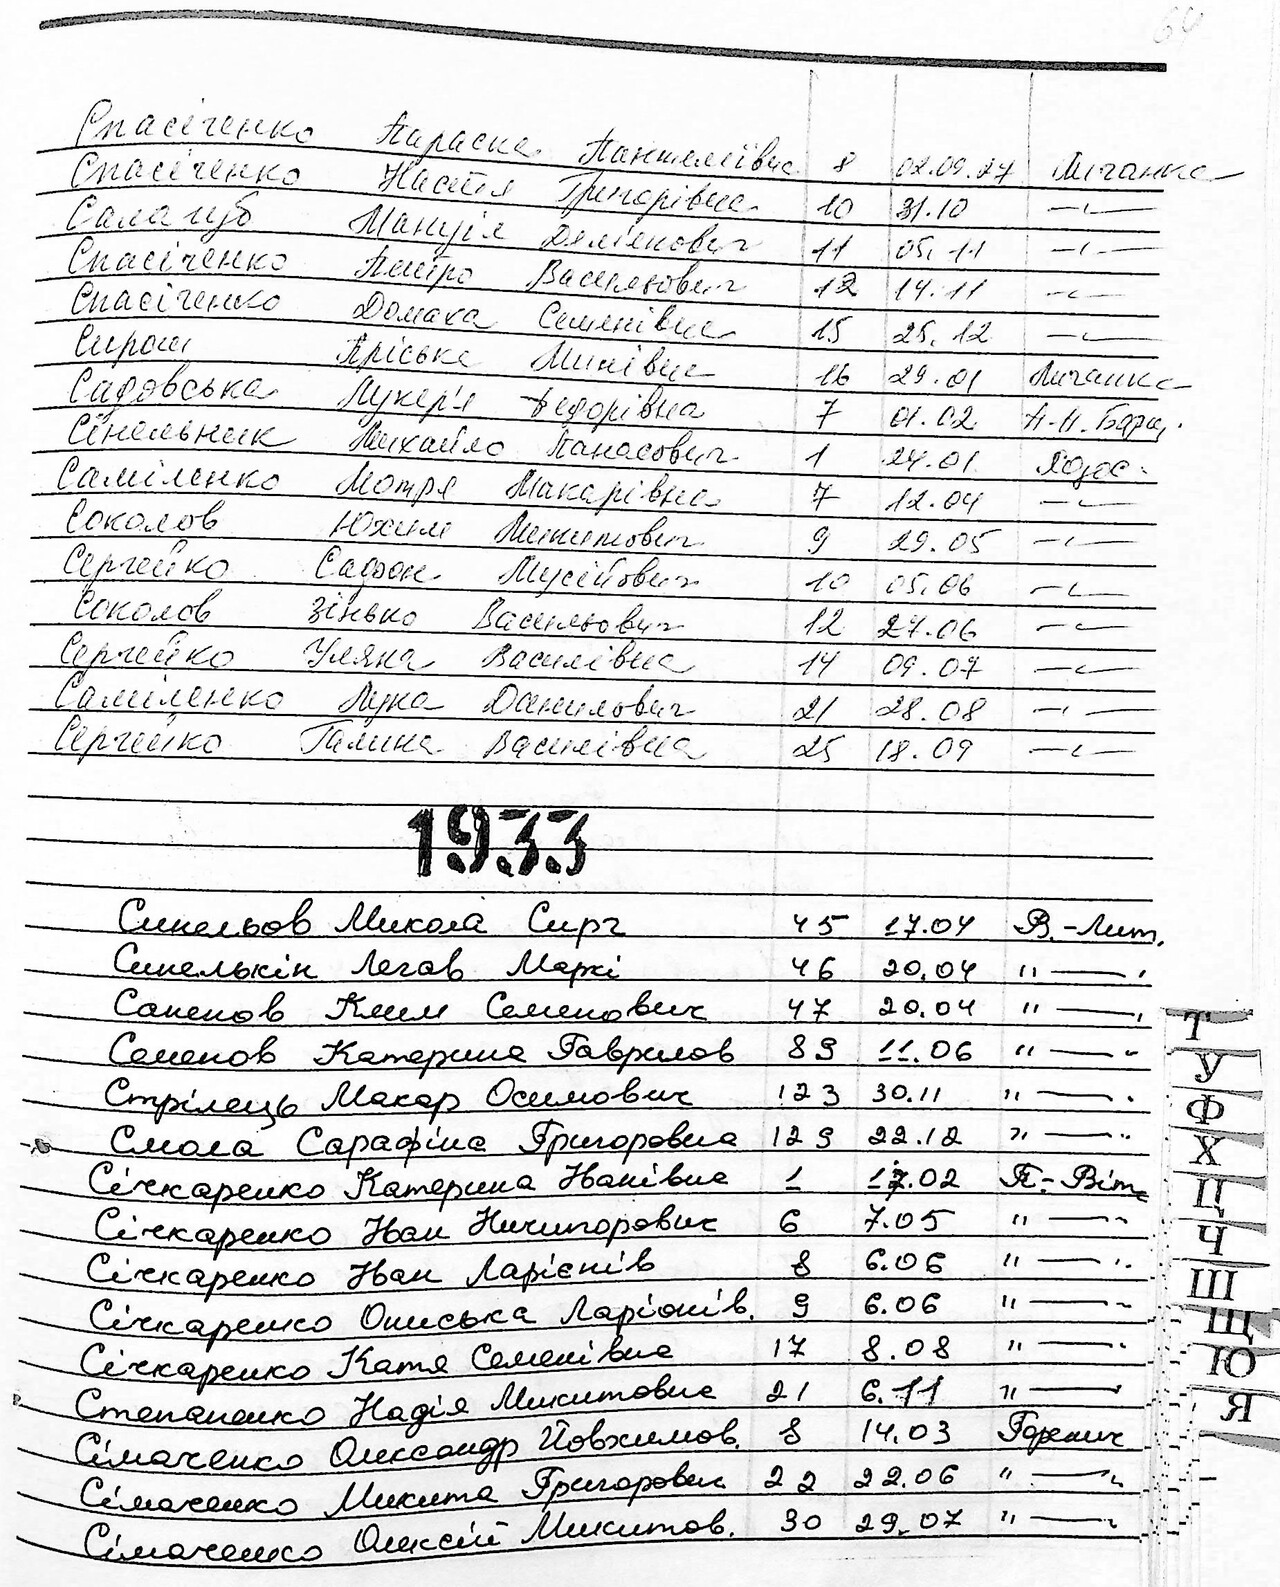 64
Спасіченко Параска Пантеліївна 8 02.09.27 Личанка
Спасіченко Настя Григорівна 10 31.10 —"—
Салагуб Мануїл Дем'янович 11 05.11 —"—
Спасіченко Петро Васильович 12 14.11 —"—
Спасіченко Домаха Семенівна 15 25.12 —"—
Сирош Пріська Минівна 16 29.01 Личанка
Садовська Лукер'я Федорівна 7 01.02
Сінельник Михайло Панасович 1 24.01
Саміленко Мотря Макарівна 7 12.04 —"—
Соколов Юхим Микитович 9 29.05 —"—
Сергейко Сафон Мусійович 10 05.06 —"—
Соколов Зінько Васильович 12 27.06 —"—
Сергейко Уляна Василівна 14 09.07 —"—
Саміленко Лука Данилович 21 28.08 —"—
Сергейко Галина Василівна 25 18.09 —"—
1933
Синельов Микола Сирг 45 17.04 В.-Лит.
Синелькін Легав Маркі 46 20.04 "—"
Сапепов Клим Семенович 47 20.04 "—"
Семенов Катерина Гаврилов 89 11.06 "—"
Стрілець Макар Осимович 123 30.11 "—"
Смола Сарафіна Григоровна 129 22.12 "—"
Січкаренко Катерина Іванівна 1 17.02 П.-Віт.
Січкаренко Іван Ничипорович 6 7.05 "—"
Січкаренко Іван Ларієнів 8 6.06 "—"
Січкаренко Ониська Ларіонів. 9 6.06 "—"
Січкаренко Катя Семенівна 17 8.08 "—"
Степаненко Надія Микитовна 21 6.11 "—"
Сімаченко Олександр Йовхимов. 8 14.03 Горенич
Сімаченко Микита Григорович 22 22.06 "—"
Сімаченко Олексій Микитов. 30 29.07 "—"
Т
У
Ф
Х
Ц
Ч
Ш
Щ
Ю
Я